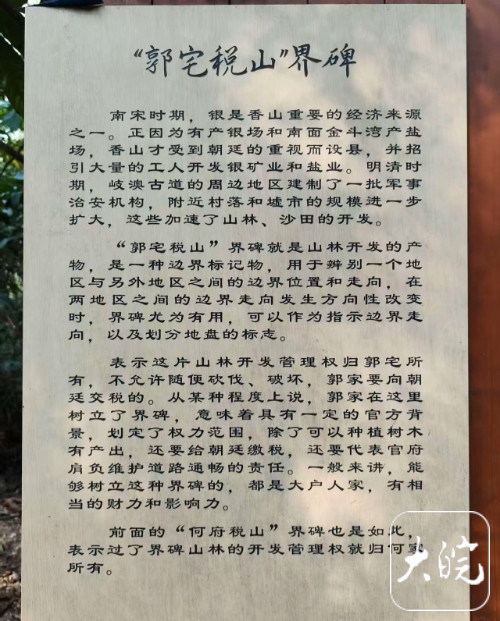 “郭宅税山”界碑
南宋时期，银是香山重要的经济来源
之一。正因为有产银场和南面金斗湾产盐
场，香山才受到朝廷的重视而设县，并招
引大量的工人开发银矿业和盐业。明清时
期，岐澳古道的周边地区建制了一批军事
治安机构，附近村落和墟市的规模进一步
扩大，这些加速了山林、沙田的开发。
“郭宅税山”界碑就是山林开发的产
物，是一种边界标记物，用于辨别一个地
区与另外地区之间的边界位置和走向，在
两地区之间的边界走向发生方向性改变
时，界碑尤为有用，可以作为指示边界走
向，以及划分地盘的标志。
表示这片山林开发管理权归郭宅所
有，不允许随便砍伐、破坏，郭家要向朝
廷交税的。从某种程度上说，郭家在这里
树立了界碑，意味着具有一定的官方背
景，划定了权力范围，除了可以种植树木
有产出，还要给朝廷缴税，还要代表官府
肩负维护道路通畅的责任。一般来讲，能
够树立这种界碑的，都是大户人家，有相
当的财力和影响力。
前面的“何府税山”界碑也是如此，
表示过了界碑山林的开发管理权就归何家
所有。
大皖